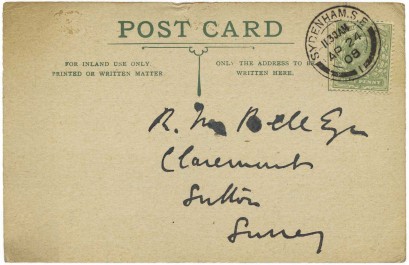 POST CARD
FOR INLAND USE ONLY.
PRINTED OR WRITTEN MATTER.
ONLY THE ADDRESS TO BE
WRITTEN HERE.
SYDENHAM. S.E.
11.30AM
AP 24
08
PENNY
R. M Bell Esq
Claremont
Sutton
Surrey